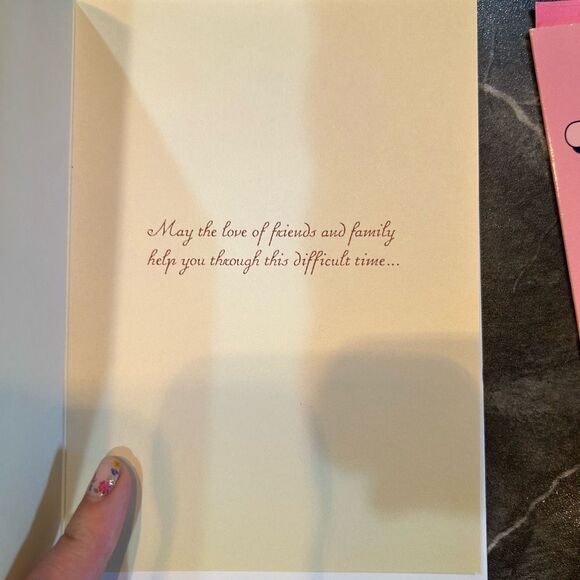 May the love of friends and family
help you through this difficult time...